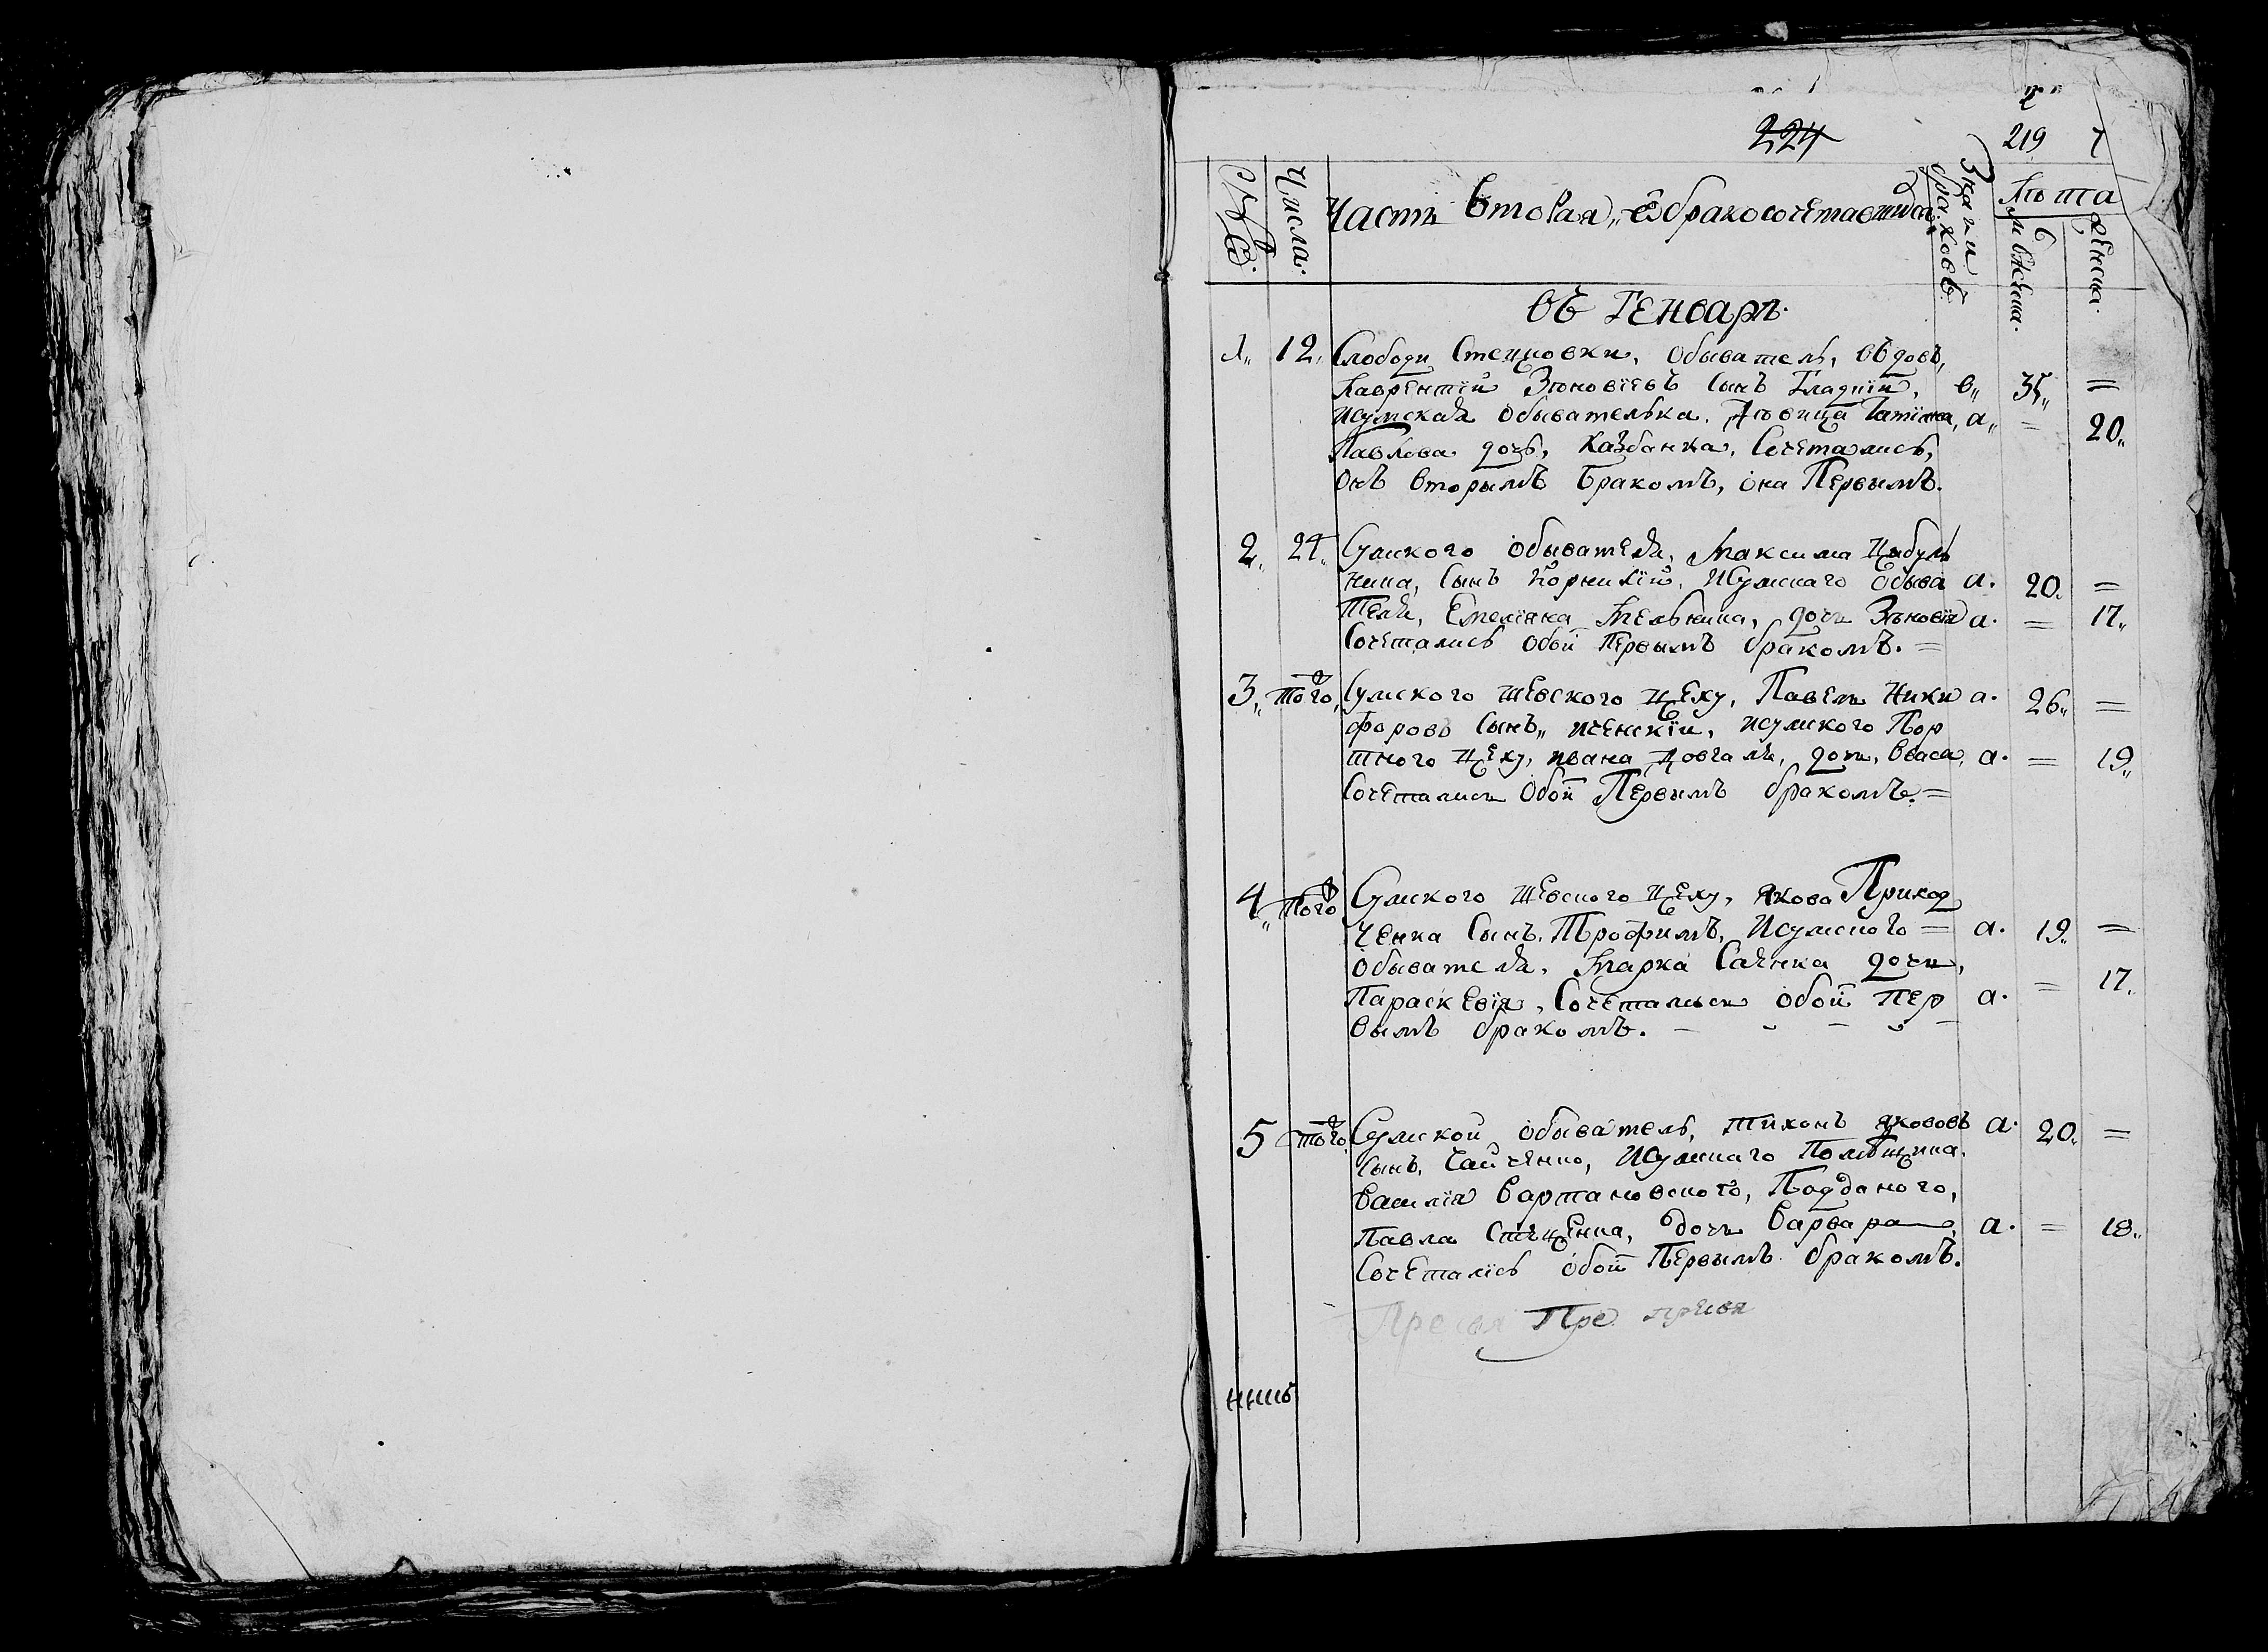 224
219
7
Числа.
Часть вторая, ѡ бракосочетавшихся
Знаки браковъ.
Лѣта
Мѣжеска.
Женска.
въ Генварѣ.
1, 12, Слободи Стецковки, обыватель, вѣдовъ,
Лаврентій Зѣновіевъ сынъ Гладкій, в, 35, =
исумская обывателька, дѣвица Татіана, а, = 20,
Павлова дочь, Казбанка, Сочетались,
онъ вторымъ бракомъ, она Первымъ.
2, 24, Сумского обывателя, Максима Цибуль
ника, сынъ Корнилій, исумскаго обыва а. 20. =
теля, Емеліяна Мельника, дочь Зѣновія а. = 17,
Сочетались обои первымъ бракомъ. =
3, того, Сумского шевского цеху, Павелъ Ники а. 26, =
форовъ сынъ, исумского Пор
тного цеху, ивана Довгаля, дочь, а. = 19,
Сочетались обои Первымъ бракомъ. =
4, того Сумского шевского цеху, якова Приход
ченка сынъ, Трофимъ, исумского = а. 19. =
обывателя, Марка Саенка дочь,
Параскевія, Сочетались обои пер а. = 17.
вымъ бракомъ. - - - -
5 того, Сумской обыватель, тихонъ яковъ а. 20. =
сынъ, исумскаго Помѣщика
василія Вартановского, Подданого,
Павла Стеценка, дочь варвара а. = 18.
Сочетались обои первымъ бракомъ.
Пре